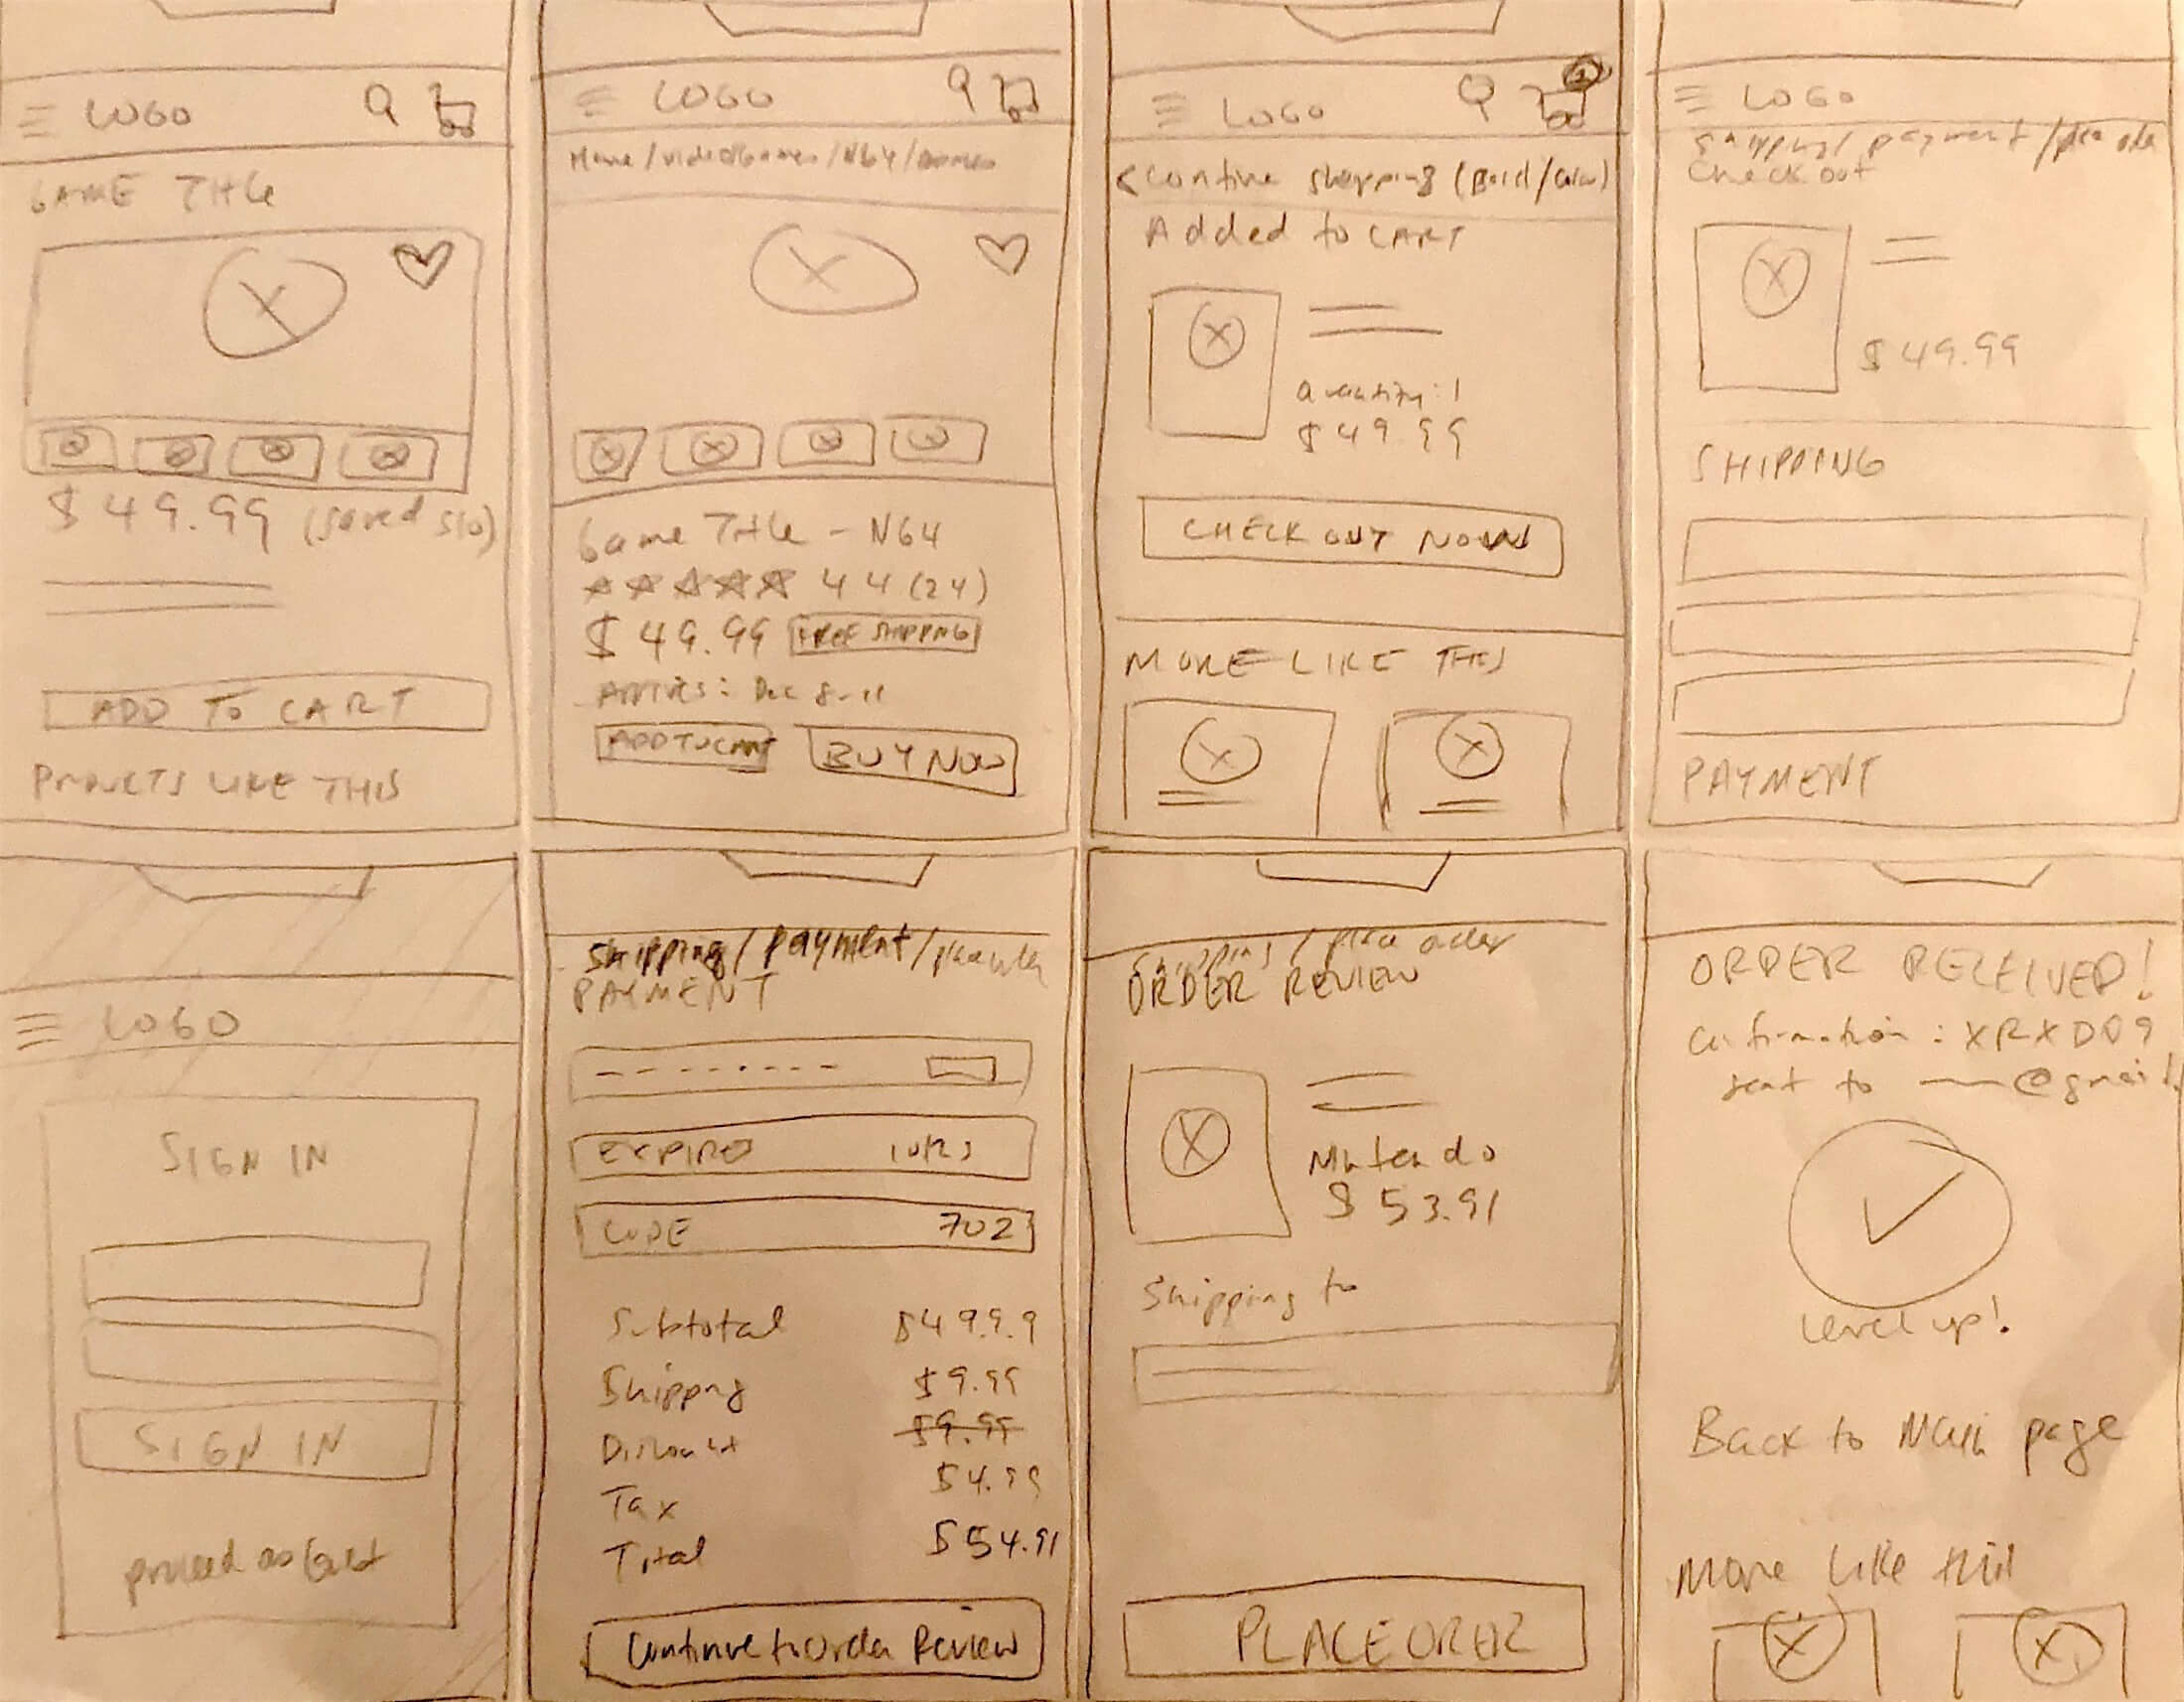 LOGO
GAME Title
$49.99 (saved $10)
ADD TO CART
LIKE THIS
LOGO
Home/videoGames/N64/
Game Title - N64
4 4 (24)
$49.99 FREE SHIPPING
Arrives: Dec 8-11
ADD TO CART BUY NOW
1
LOGO
< Contine shopping (Bold/color)
Added to CART
Quantity: 1
$49.99
CHECK OUT NOW
MORE LIKE THIS
LOGO
Shipping/payment/
Check out
$49.99
SHIPPING
PAYMENT
LOGO
SIGN IN
SIGN IN
proceed as Guest
Shipping/payment/
PAYMENT
EXPIRES
CODE 702
Subtotal $49.9.9
Shipping $9.99
Discount $9.99
Tax $4.99
Total $54.91
Continue to Order Review
Shipping / place order
ORDER REVIEW
Nintendo
$53.91
Shipping to
PLACE ORER
ORDER RECEIVED!
Confirmation: XRXDD9
sent to @gmail
Level up!
Back to Main page
More like this